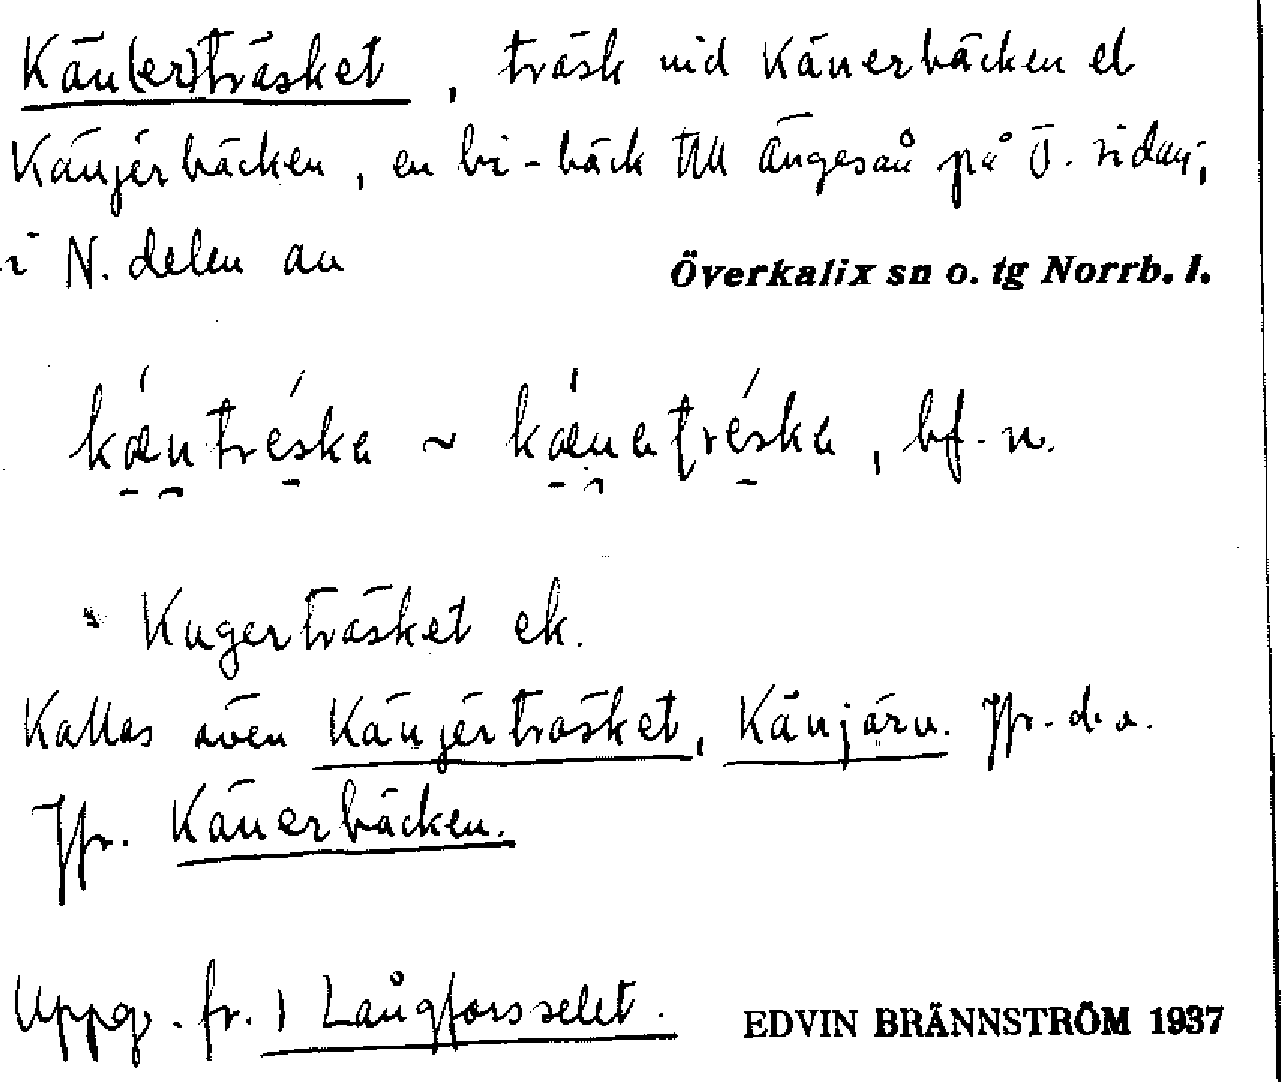 Kän(er)träsket, träsk vid Känerbäcken el
Känjérbäcken, en bi-bäck till Ängesån på Ö. sidan,
i N. delen av Överkalix sn o. tg Norrb. l.
kæntréska ~ kænatréska, bf. n.
Kugerträsket ek.
Kallas även Känjérträsket, Känjärv. Jfr. d. o.
Jfr. Känerbäcken.
Uppg. fr. i Långforsselet. EDVIN BRÄNNSTRÖM 1937